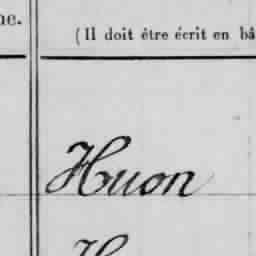 ne.
(Il doit être écrit en bâ
Huon